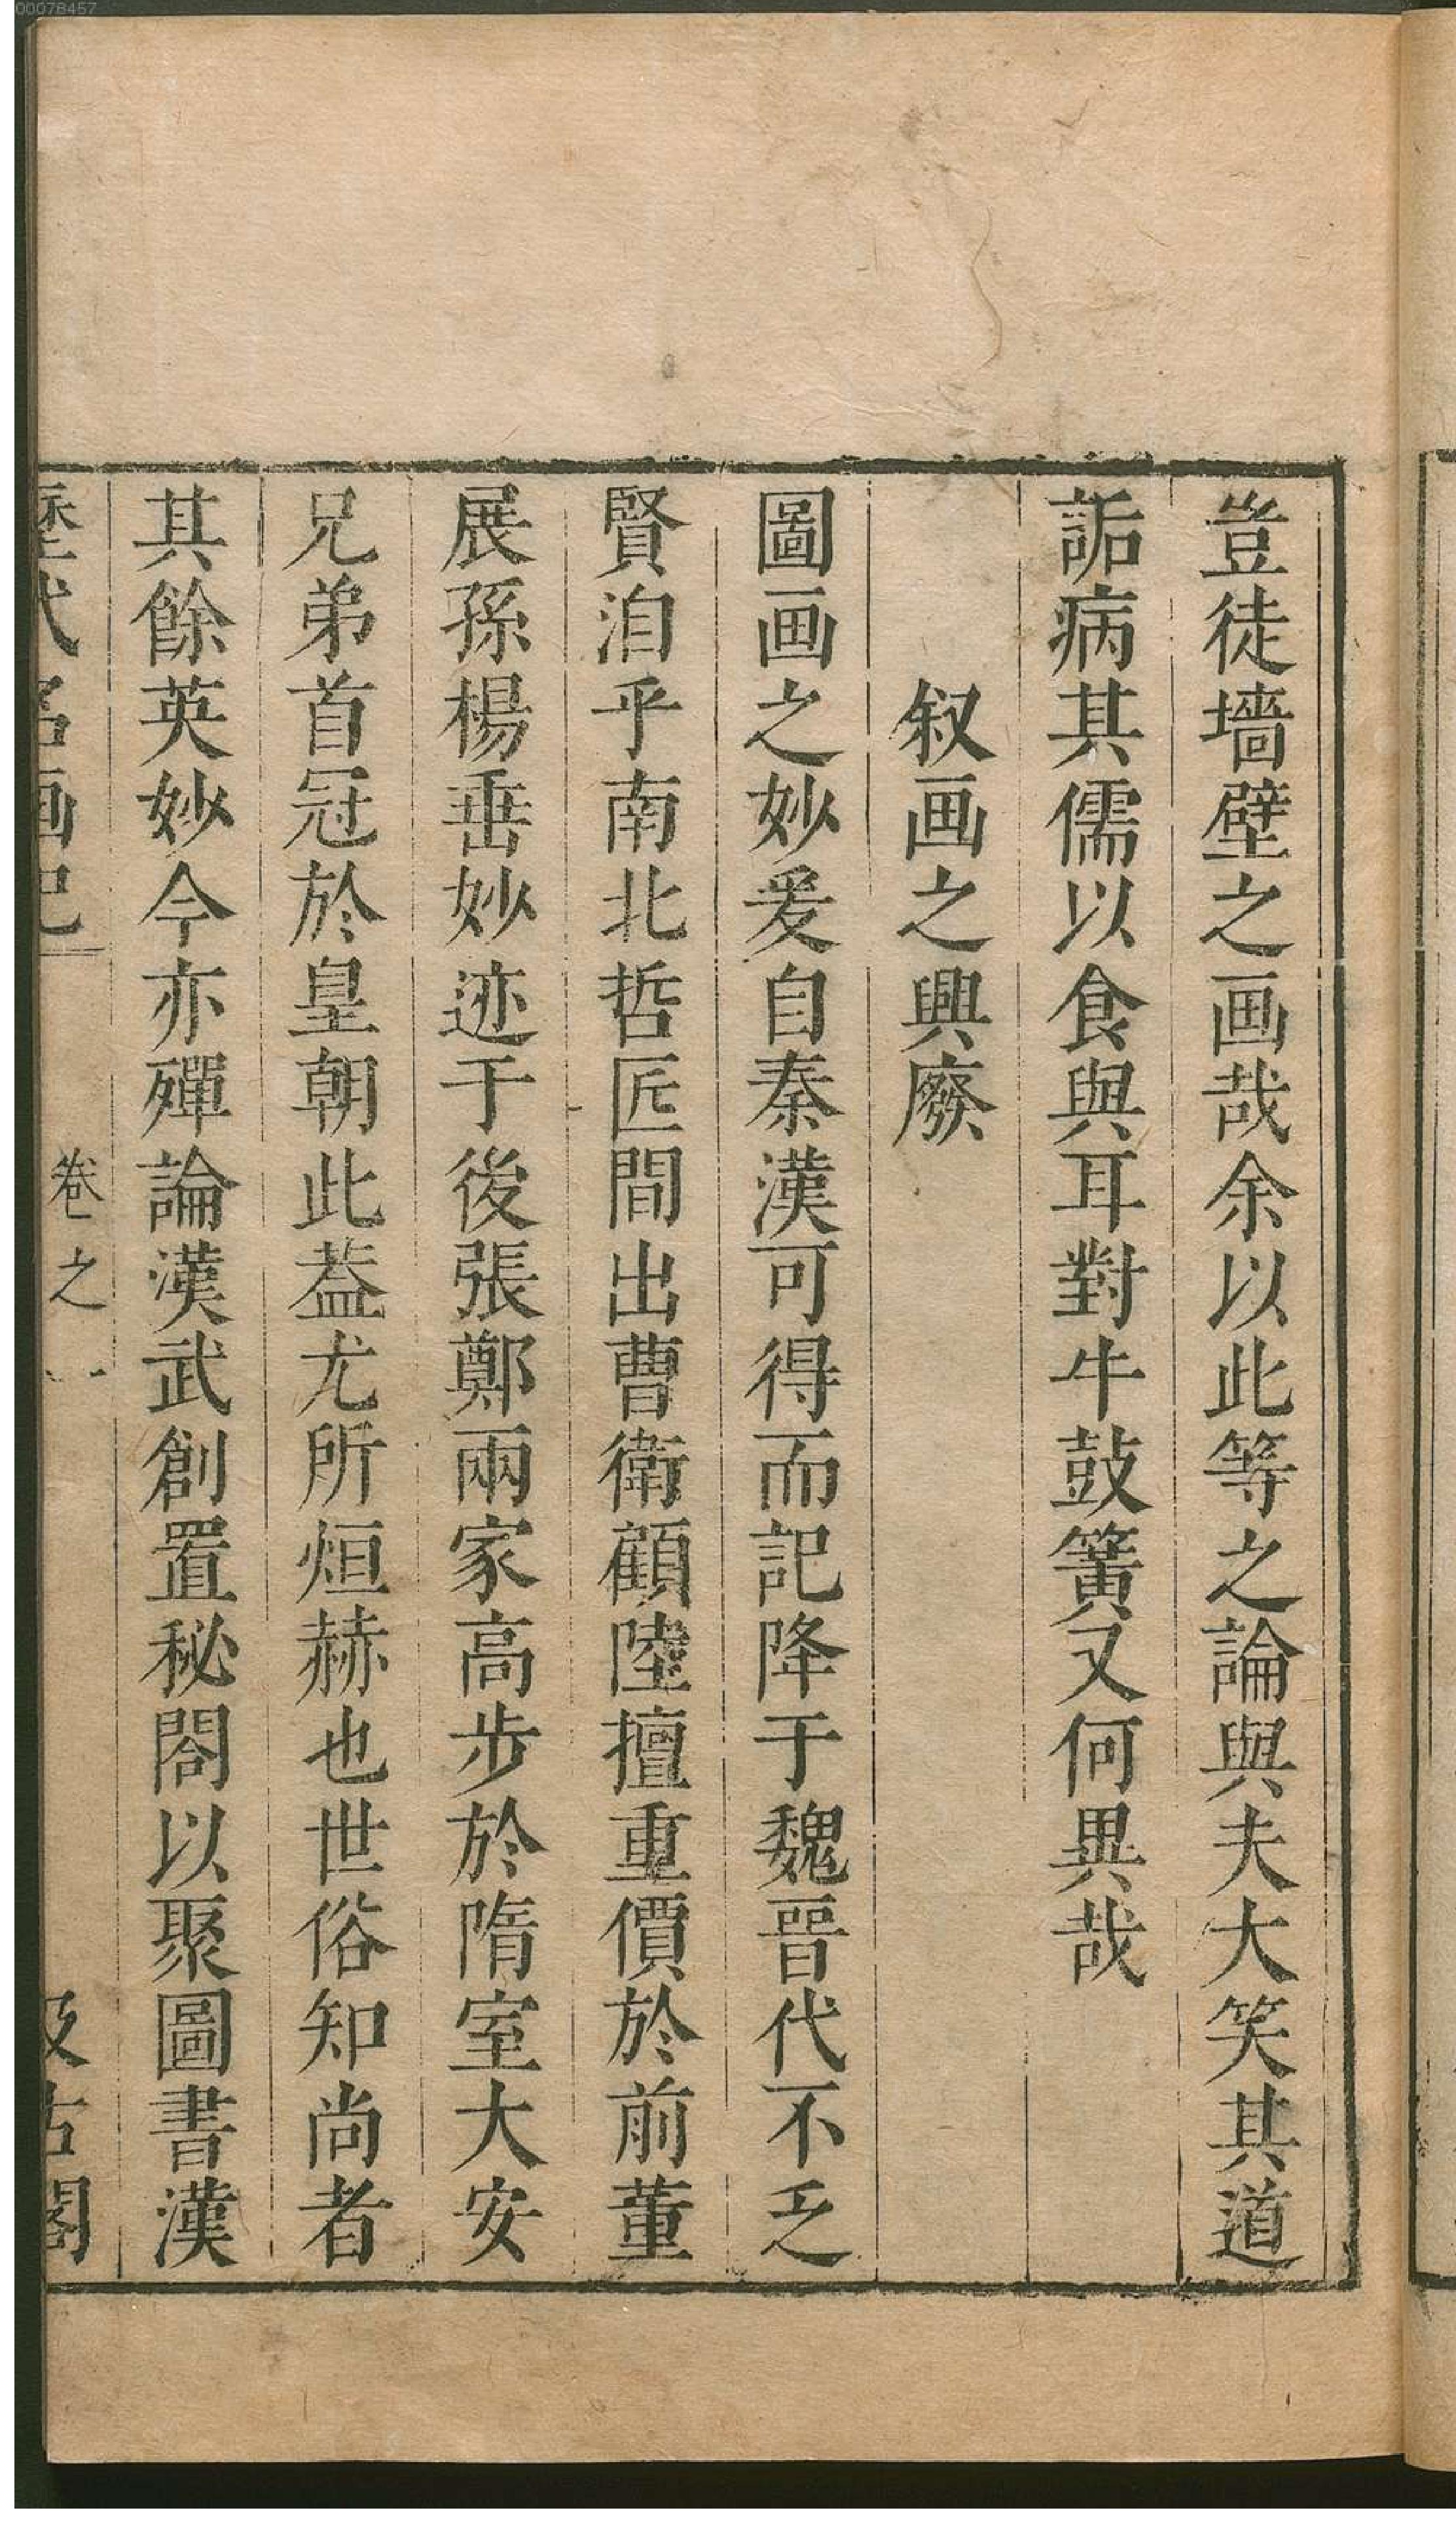 00078457
豈徒墻壁之画哉余以此等之論與夫大笑其道
詬病其儒以食與耳對牛鼓簧又何異哉
叙画之興廢
圖画之妙爰自秦漢可得而記降于魏晉代不乏
賢洎乎南北哲匠間出曹衛顧陸擅重價於前董
展孫楊垂妙迹于後張鄭兩家高步於隋室大安
兄弟首冠於皇朝此葢尤所烜赫也世俗知尚者
其餘英妙今亦殫論漢武創置秘閣以聚圖書漢
歷代名画記 卷之一 汲古閣